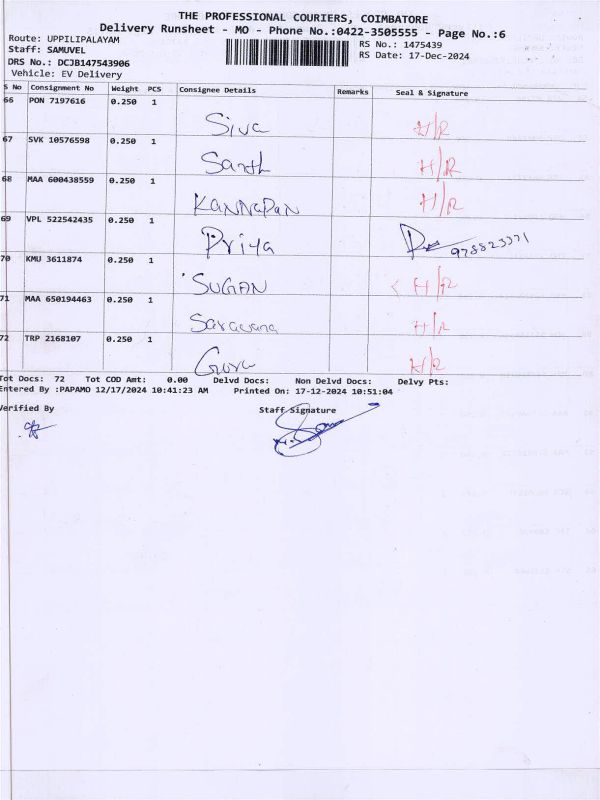 THE PROFESSIONAL COURIERS, COIMBATORE
Delivery Runsheet - MO - Phone No.:0422-3505555 - Page No.:6
Route: UPPILIPALAYAM
RS No.: 1475439
Staff: SAMUVEL
RS Date: 17-Dec-2024
DRS No.: DCJB147543906
Vehicle: EV Delivery
S No Consignment No Weight PCS Consignee Details Remarks Seal & Signature
66 PON 7197616 0.250 1 Siva H/R
67 SVK 10576598 0.250 1 H/R
68 MAA 600438559 0.250 1 KANNAPAN H/R
69 VPL 522542435 0.250 1 Priya
70 KMU 3611874 0.250 1 SUGAN H/R
71 MAA 650194463 0.250 1 Saravana H/R
72 TRP 2168107 0.250 1 H/R
Tot Docs: 72 Tot COD Amt: 0.00 Delvd Docs: Non Delvd Docs: Delvy Pts:
Entered By :PAPAMO 12/17/2024 10:41:23 AM Printed On: 17-12-2024 10:51:04
Verified By Staff Signature